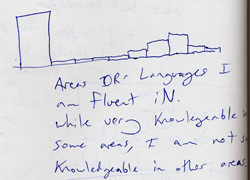 Areas DR. Languages I
am Fluent iN.
while very Knowlegeable in
some areas, I am not
Knowledgeable in other areas